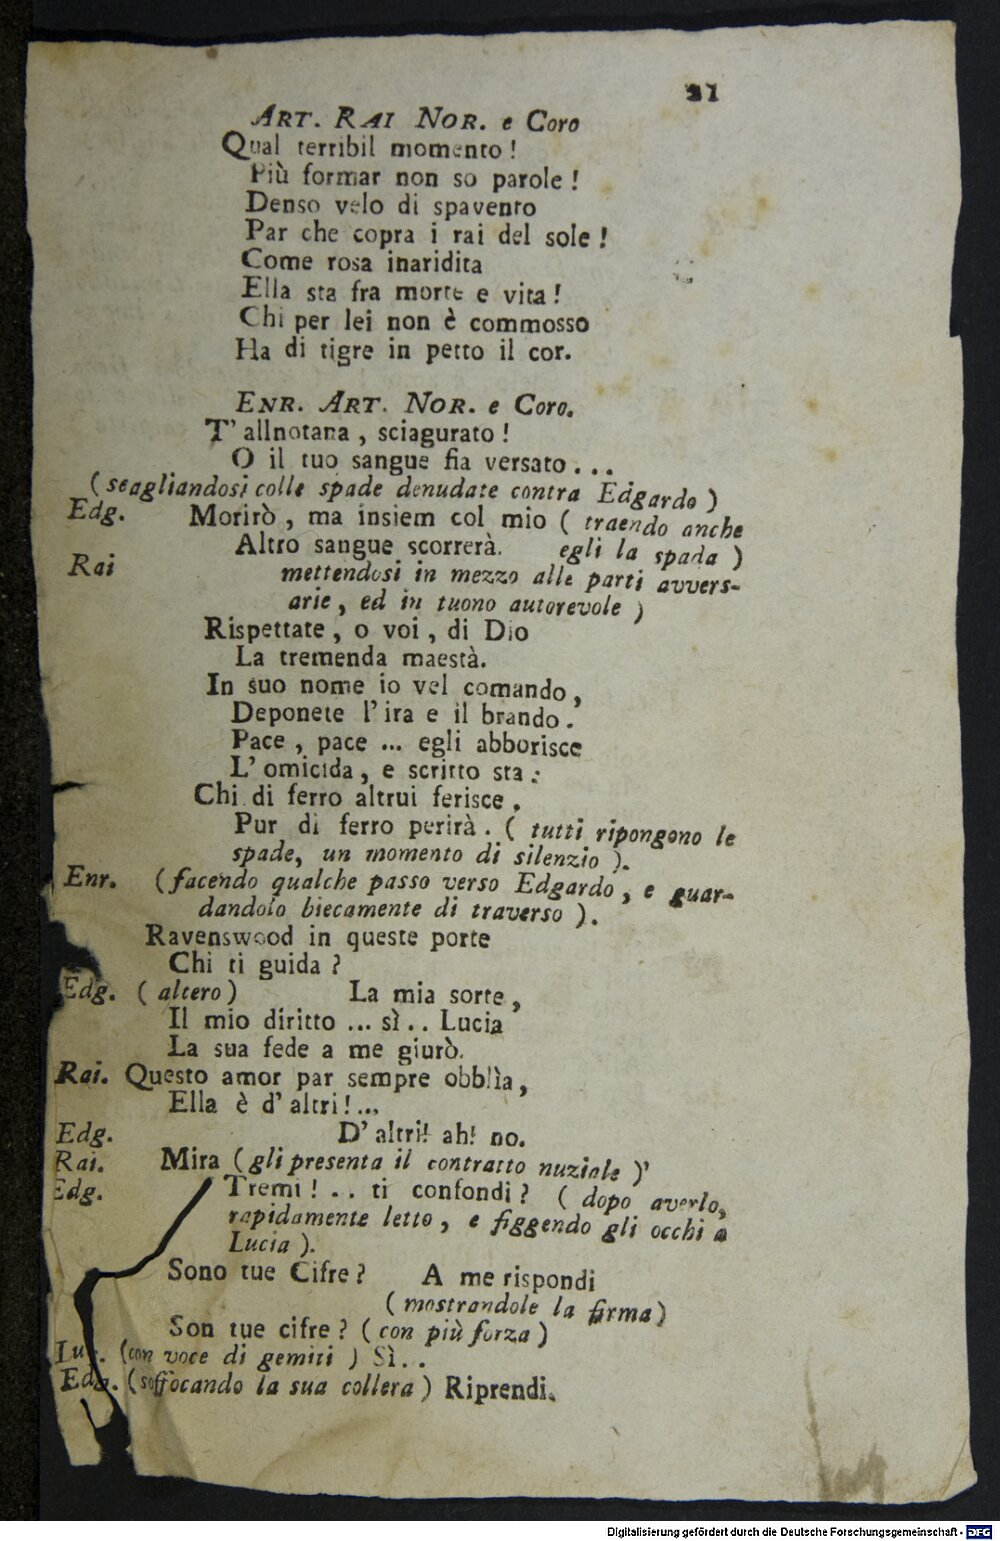 21
ART. RAI NOR. e Coro
Qual terribil momento !
Più formar non so parole !
Denso velo di spavento
Par che copra i rai del sole !
Come rosa inaridita
Ella sta fra morte e vita !
Chi per lei non è commosso
Ha di tigre in petto il cor.
ENR. ART. NOR. e Coro.
T' allnotana , sciagurato !
O il tuo sangue fia versato . . .
( seagliandosi colle spade denudate contra Edgardo )
Edg. Morirò , ma insiem col mio ( traendo anche
Altro sangue scorrerà. egli la spada )
Rai mettendosi in mezzo alle parti avvers-
arie , ed in tuono autorevole )
Rispettate , o voi , di Dio
La tremenda maestà.
In suo nome io vel comando ,
Deponete l' ira e il brando .
Pace , pace ... egli abborisce
L' omicida , e scritto sta :
Chi di ferro altrui ferisce ,
Pur di ferro perirà . ( tutti ripongono le
spade, un momento di silenzio ).
Enr. (facendo qualche passo verso Edgardo , e guar-
dandolo biecamente di traverso ).
Ravenswood in queste porte
Chi ti guida ?
Edg. ( altero ) La mia sorte ,
Il mio diritto ... sì . . Lucia
La sua fede a me giurò.
Rai. Questo amor par sempre obblìa ,
Ella è d' altri ! ...
Edg. D' altri! ah! no.
Rai. Mira ( gli presenta il contratto nuziale )'
Edg. Tremi ! . . ti confondi ? ( dopo averlo,
rapidamente letto , e figgendo gli occhi a
Lucia ).
Sono tue Cifre ? A me rispondi
( mostrandole la firma )
Son tue cifre ? ( con più forza )
Luc. (con voce di gemiti ) Sì . .
Edg. ( soffocando la sua collera ) Riprendi.
Digitalisierung gefördert durch die Deutsche Forschungsgemeinschaft - DFG